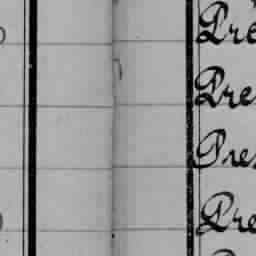 Pre
Pres
Pres
Pre